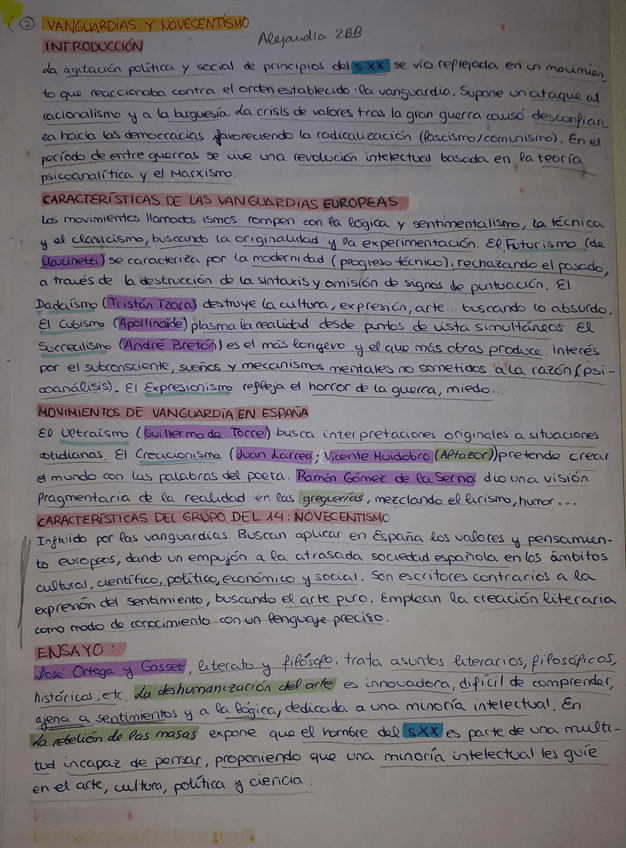 ② VANGUARDIAS Y NOVECENTISMO
Alejandra 2BB
INTRODUCCIÓN
La agitación política y social de principios del s XX se vio reflejada en un movimien
to que reaccionaba contra el orden establecido: la vanguardia. Supone un ataque al
racionalismo y a la burguesía. La crisis de valores tras la gran guerra causó desconfian
za hacia las democracias favoreciendo la radicalización (fascismo/comunismo). En el
período de entre guerras se vive una revolución intelectual basada en la teoría
psicoanalítica y el Marxismo.
CARACTERÍSTICAS DE LAS VANGUARDIAS EUROPEAS
Los movimientos llamados ismos rompen con la lógica y sentimentalismo, la técnica
y el clasicismo, buscando la originalidad y la experimentación. El Futurismo (de
Marinetti) se caracteriza por la modernidad (progreso técnico), rechazando el pasado,
a través de la destrucción de la sintaxis y omisión de signos de puntuación. El
Dadaísmo (Tristán Tzara) destruye la cultura, expresión, arte... buscando lo absurdo.
El Cubismo (Apollinaide) plasma la realidad desde puntos de vista simultáneos El
Surrealismo (André Bretón) es el más longevo y el que más obras produce. Interés
por el subconsciente, sueños y mecanismos mentales no sometidos a la razón (psi-
coanálisis). El Expresionismo refleja el horror de la guerra, miedo...
MOVIMIENTOS DE VANGUARDIA EN ESPAÑA
El Ultraísmo (Guillermo de Torre) busca interpretaciones originales a situaciones
cotidianas. El Creacionismo (Juan Larrea; Vicente Huidobro (Altazor)) pretende crear
el mundo con las palabras del poeta. Ramón Gómez de la Serna dio una visión
fragmentaria de la realidad en las greguerías, mezclando el lirismo, humor...
CARACTERÍSTICAS DEL GRUPO DEL 14: NOVECENTISMO
Influido por las vanguardias Buscan aplicar en España los valores y pensamien-
to europeos, dando un empujón a la atrasada sociedad española en los ámbitos
cultural, científico, político, económico y social. Son escritores contrarios a la
expresión del sentimiento, buscando el arte puro. Emplean la creación literaria
como modo de conocimiento con un lenguaje preciso.
ENSAYO:
José Ortega y Gasset, literato y filósofo, trata asuntos literarios, filosóficos,
históricos, etc. La deshumanización del arte es innovadora, difícil de comprender,
ajena a sentimientos y a la lógica, dedicada a una minoría intelectual. En
La rebelión de las masas expone que el hombre del sXX es parte de una multi-
tud incapaz de pensar, proponiendo que una minoría intelectual les guíe
en el arte, cultura, política y ciencia.